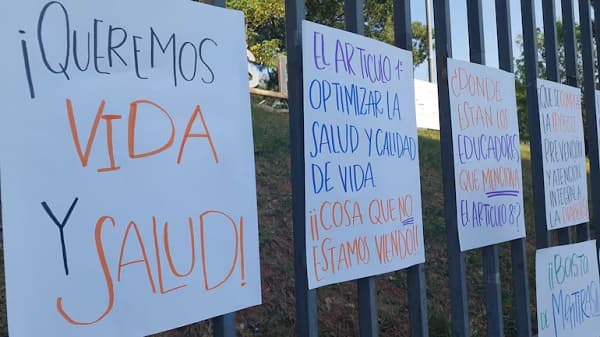 ¡QUEREMOS
VIDA
Y
SALUD!
EL ARTICULO 1º
OPTIMIZAR LA
SALUD Y CALIDAD
DE VIDA.
¡¡COSA QUE NO
ESTAMOS VIENDO!!
¿DONDE
ESTAN LOS
EDUCADORES
QUE MENCIONA
EL ARTICULO 8º?
QUE SE CUMPLA
LA
PREVENCIÓN
Y ATENCIÓN
INTEGRAL A
LA
¡¡BOLSTA
DE
MENTIRAS!!